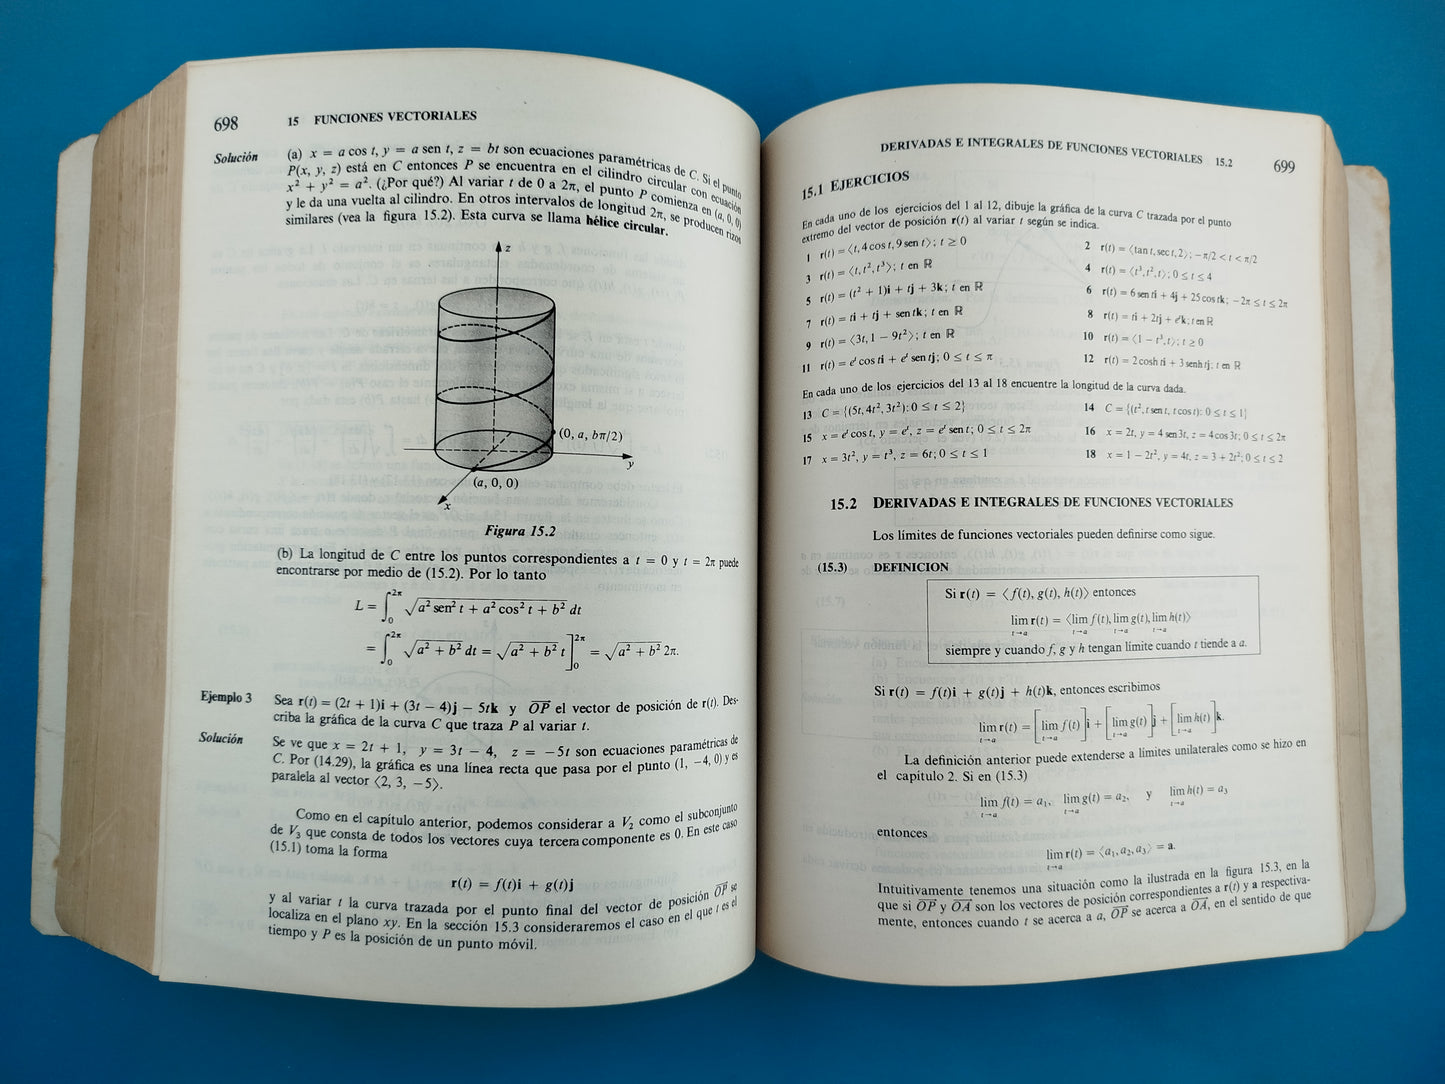 698 15 FUNCIONES VECTORIALES
Solución (a) x = a cos t, y = a sen t, z = bt son ecuaciones paramétricas de C. Si el punto
P(x, y, z) está en C entonces P se encuentra en el cilindro circular con ecuación
x² + y² = a². (¿Por qué?) Al variar t de 0 a 2π, el punto P comienza en (a, 0, 0)
y le da una vuelta al cilindro. En otros intervalos de longitud 2π, se producen rizos
similares (vea la figura 15.2). Esta curva se llama hélice circular.
z
(0, a, bπ/2)
y
(a, 0, 0)
x
Figura 15.2
(b) La longitud de C entre los puntos correspondientes a t = 0 y t = 2π puede
encontrarse por medio de (15.2). Por lo tanto
L = ∫₀^{2π} √(a² sen² t + a² cos² t + b²) dt
= ∫₀^{2π} √(a² + b²) dt = √(a² + b²) t ]₀^{2π} = √(a² + b²) 2π.
Ejemplo 3 Sea r(t) = (2t + 1)i + (3t − 4)j − 5tk y OP el vector de posición de r(t). Des-
criba la gráfica de la curva C que traza P al variar t.
Solución Se ve que x = 2t + 1, y = 3t − 4, z = −5t son ecuaciones paramétricas de
C. Por (14.29), la gráfica es una línea recta que pasa por el punto (1, −4, 0) y es
paralela al vector ⟨2, 3, −5⟩.
Como en el capítulo anterior, podemos considerar a V₂ como el subconjunto
de V₃ que consta de todos los vectores cuya tercera componente es 0. En este caso
(15.1) toma la forma
r(t) = f(t)i + g(t)j
y al variar t la curva trazada por el punto final del vector de posición OP se
localiza en el plano xy. En la sección 15.3 consideraremos el caso en el que t es el
tiempo y P es la posición de un punto móvil.
DERIVADAS E INTEGRALES DE FUNCIONES VECTORIALES 15.2 699
15.1 EJERCICIOS
En cada uno de los ejercicios del 1 al 12, dibuje la gráfica de la curva C trazada por el punto
extremo del vector de posición r(t) al variar t según se indica.
1 r(t) = ⟨t, 4 cos t, 9 sen t⟩; t ≥ 0
2 r(t) = ⟨tan t, sec t, 2⟩; −π/2 < t < π/2
3 r(t) = ⟨t, t², t³⟩; t en ℝ
4 r(t) = ⟨t³, t², t⟩; 0 ≤ t ≤ 4
5 r(t) = (t² + 1)i + tj + 3k; t en ℝ
6 r(t) = 6 sen ti + 4j + 25 cos tk; −2π ≤ t ≤ 2π
7 r(t) = ti + tj + sen tk; t en ℝ
8 r(t) = ti + 2tj + eᵗk; t en ℝ
9 r(t) = ⟨3t, 1 − 9t²⟩; t en ℝ
10 r(t) = ⟨1 − t³, t⟩; t ≥ 0
11 r(t) = eᵗ cos ti + eᵗ sen tj; 0 ≤ t ≤ π
12 r(t) = 2 cosh ti + 3 senh tj; t en ℝ
En cada uno de los ejercicios del 13 al 18 encuentre la longitud de la curva dada.
13 C = {(5t, 4t², 3t²): 0 ≤ t ≤ 2}
14 C = {(t², t sen t, t cos t): 0 ≤ t ≤ 1}
15 x = eᵗ cos t, y = eᵗ, z = eᵗ sen t; 0 ≤ t ≤ 2π
16 x = 2t, y = 4 sen 3t, z = 4 cos 3t; 0 ≤ t ≤ 2π
17 x = 3t², y = t³, z = 6t; 0 ≤ t ≤ 1
18 x = 1 − 2t², y = 4t, z = 3 + 2t²; 0 ≤ t ≤ 2
15.2 DERIVADAS E INTEGRALES DE FUNCIONES VECTORIALES
Los límites de funciones vectoriales pueden definirse como sigue.
(15.3) DEFINICION
Si r(t) = ⟨f(t), g(t), h(t)⟩ entonces
lim_{t→a} r(t) = ⟨lim_{t→a} f(t), lim_{t→a} g(t), lim_{t→a} h(t)⟩
siempre y cuando f, g y h tengan límite cuando t tiende a a.
Si r(t) = f(t)i + g(t)j + h(t)k, entonces escribimos
lim_{t→a} r(t) = [lim_{t→a} f(t)]i + [lim_{t→a} g(t)]j + [lim_{t→a} h(t)]k.
La definición anterior puede extenderse a límites unilaterales como se hizo en
el capítulo 2. Si en (15.3)
lim_{t→a} f(t) = a₁, lim_{t→a} g(t) = a₂, y lim_{t→a} h(t) = a₃
entonces
lim_{t→a} r(t) = ⟨a₁, a₂, a₃⟩ = a.
Intuitivamente tenemos una situación como la ilustrada en la figura 15.3, en la
que si OP y OA son los vectores de posición correspondientes a r(t) y a respectiva-
mente, entonces cuando t se acerca a a, OP se acerca a OA, en el sentido de que